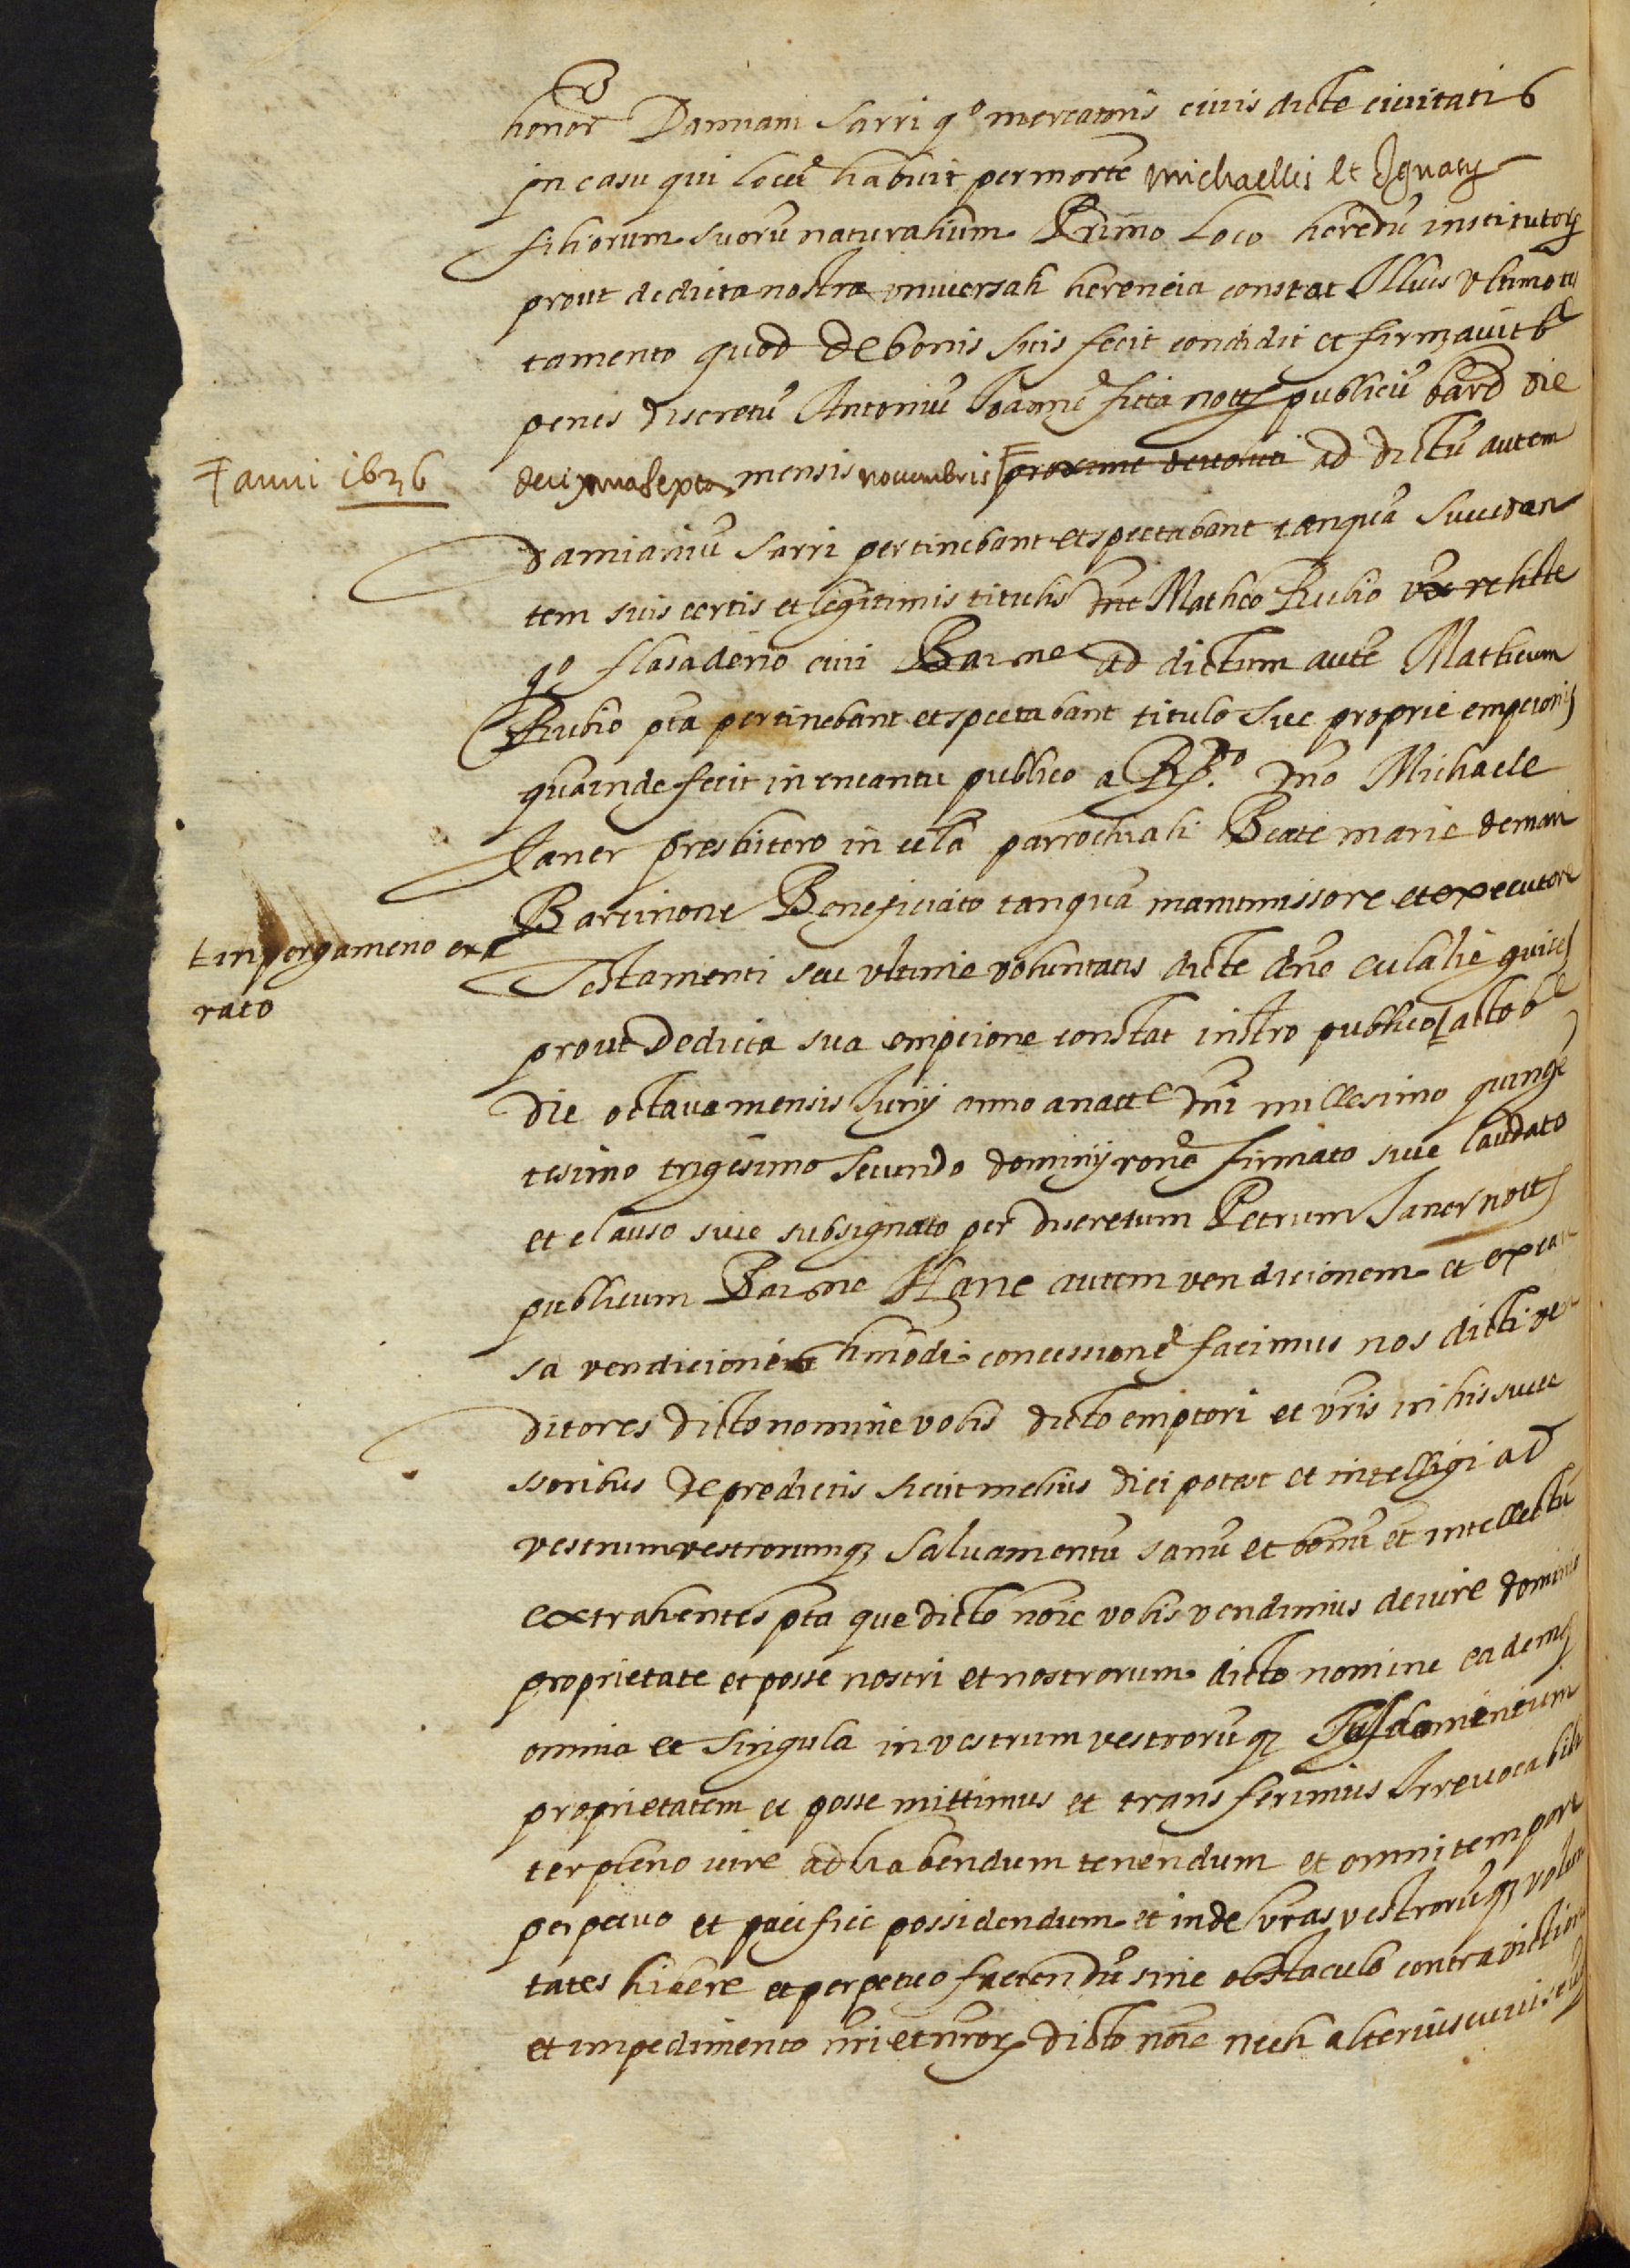 honor Damiani Sarri q° mercatoris civis dicte civitatis
in casu qui locu habuit per morte Michaellis et Ignatij
filiorum suoru naturalium Primo loco heredu institutor
prout de dicta nostra universali herencia constat Illius ultimo tes
tamento quod de bonis suis fecit condidit et firmavit b^e
penes discretu Antoniu Joanne fitta nott publicu barc die
decima sexta mensis novembris proxime devoluti ad dictu autem
Ŧ anni 1636
damianu Sarri pertinebant et spectabant tanqua succedan
tem suis certis et legitimis titulis dne Matheo Rubio vxe relicte
q° flasaderio civi Barne ad dictum aute Matheum
Rubio pta pertinebant et spectabant titulo sue proprie empcionis
qua inde fecit in encantu publico a R^do. dno Michaele
Janer presbitero in ecla parrochiali Beate marie de mari
Barcinone Beneficiato tanqua manumissore et executore
Testamenti seu ultimie voluntatis dicte dne eulalie
Ł in pergameno exa
rato
prout de dicta sua empcione constat instro publico acto b^e
die octava mensis Junij anno a nat^e dni millesimo quinge
tesimo trigesimo secundo dominij rone firmato sive laudato
et clauso sive subsignato per discretum Petrum Janer nott
publicum Barne Hanc autem vendicionem et ex cau
sa vendicionis hmodi concessione facimus nos dicti ven
ditores dicto nomine vobis dicto emptori et vris in his succe
ssoribus de predictis sicut melius dici potest et intelligi ad
vestrum vestrorumq salvamentu sanu et bonu et intellectu
extrahentes pta que dicto noie vobis vendimus de iure dominio
proprietate et posse nostri et nostrorum dicto nomine eademq
omnia et singula in vestrum vestroruq Jus domenicum
proprietatem et posse mittimus et transferimus Irrevocabili
ter pleno iure ad habendum tenendum et omni tempore
perpetuo et pacifice possidendum et inde vras vestroruq volun
tates libere et perpetuo faciendu sine obstaculo contradictione
et impedimento nri et nror dicto noie nech alterius cuiis